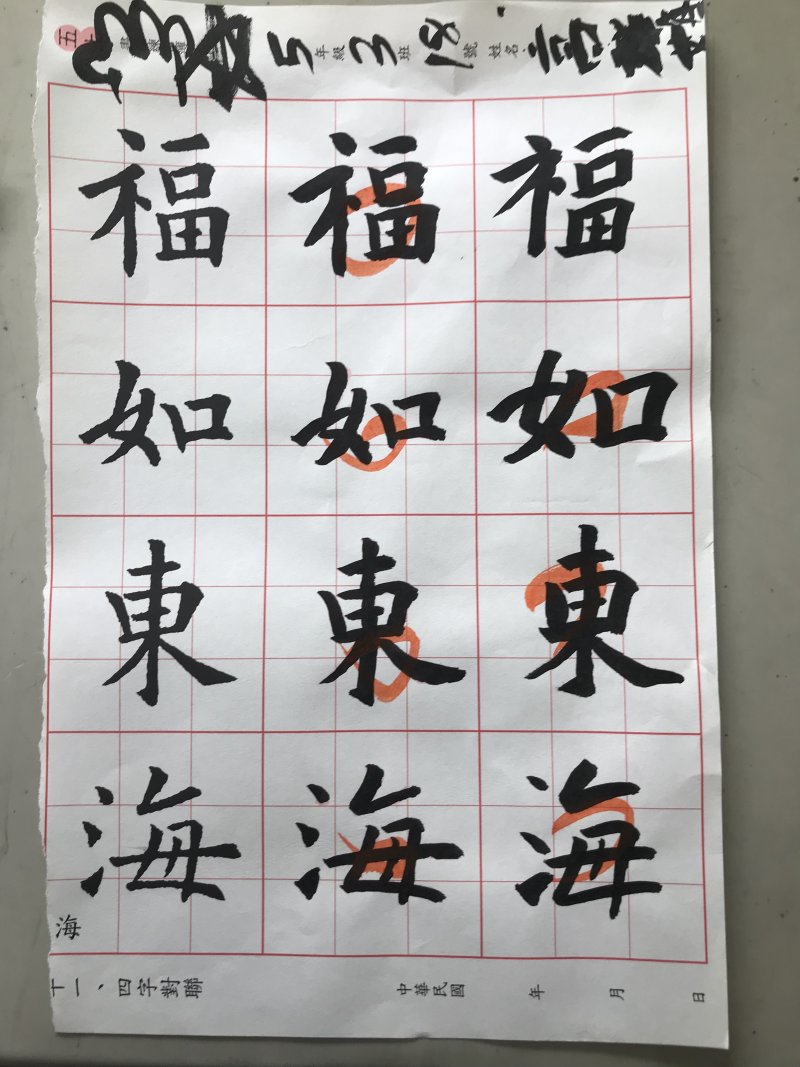 五
5年級3班18號 姓名
福福福
如如如
東東東
海海海
海
十一、四字對聯
中華民國 年 月 日